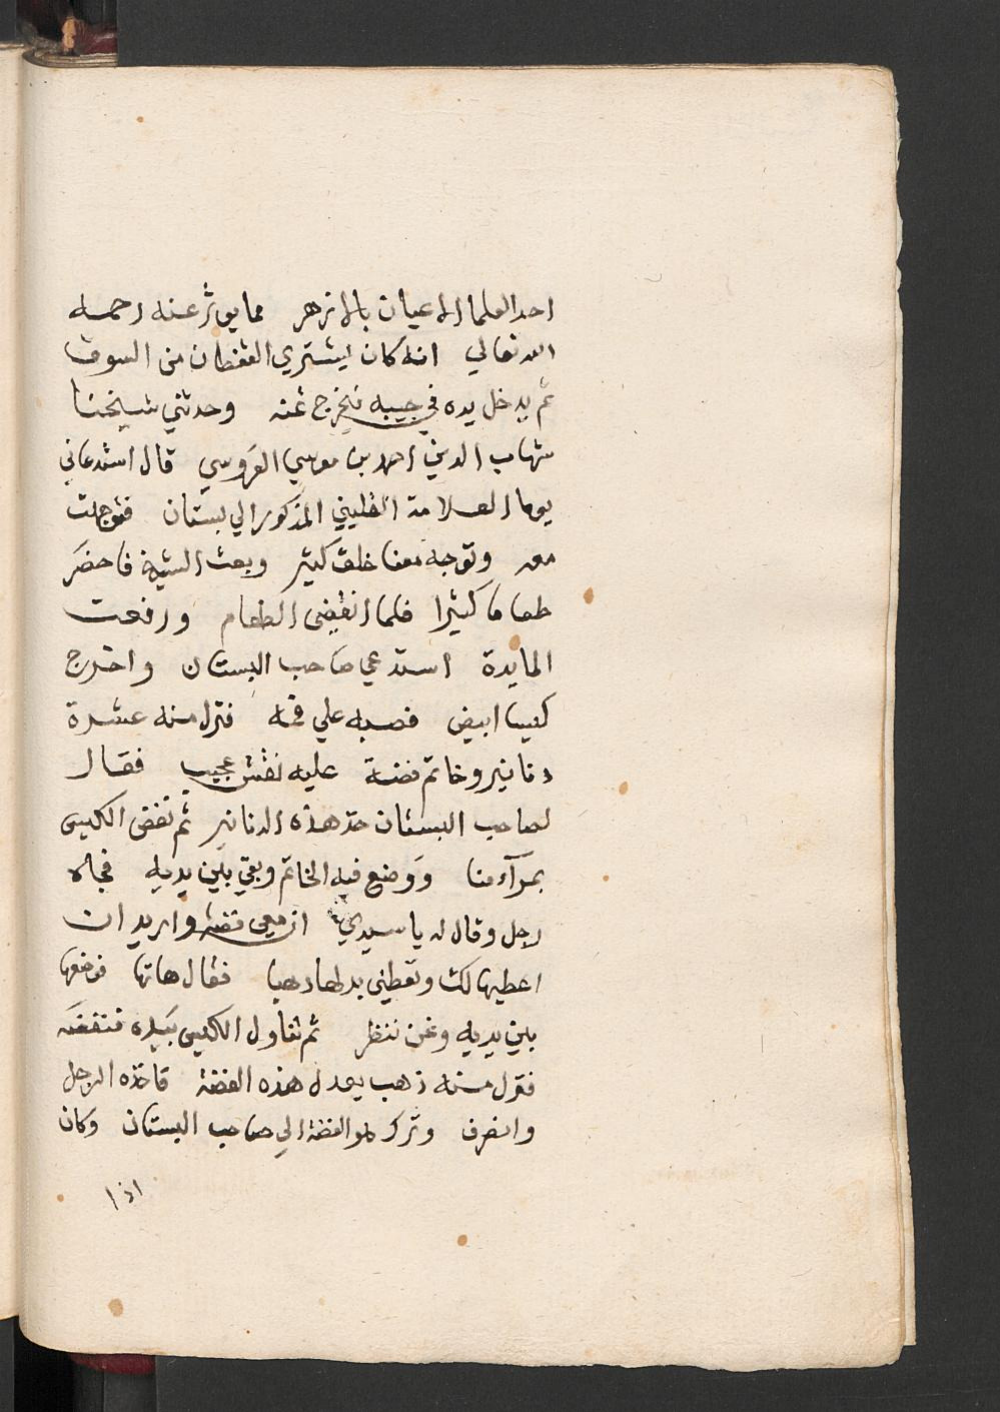 احد العلما الاعيان بالازهر مما يوثر عنه رحمه
الله تعالي انه كان يشتري القفطان من السوق
ثم يدخل يده في جيبه فيخرج ثمنه وحدثني شيخنا
شهاب الدين احمد بن موسي العروسي قال استدعاني
يوما العلامة الخليفي المذكور الي بستان فتوجهت
معه وتوجه معنا خلق كثير وبعث الشيخ فاحضر
طعاما كثيرا فلما انقضى الطعام ورفعت
المايدة استدعي صاحب البستان واخرج
كيسا ابيض فصبه علي فمه فنزل منه عشرة
دنانير وخاتم فضة عليه نقش عجيب فقال
لصاحب البستان خذ هذه الدنانير ثم نفض الكيس
بمرآء منا ووضع فيه الخاتم وبقي بين يديه فجاه
رجل وقال له يا سيدي ان معي فضة واريد ان
اعطيها لك وتعطيني بدلها ذهبا فقال هاتها فوضعها
بين يديه ونحن ننظر ثم تناول الكيس بيده فنفضه
فنزل منه ذهب يعدل هذه الفضة فاخذه الرجل
وانصرف وترك هو الفضة الي صاحب البستان وكان
اذا